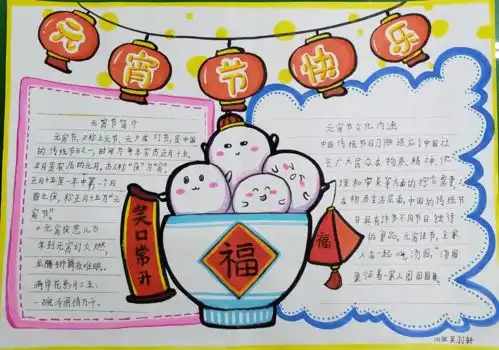 元宵节快乐
元宵节简介
元宵节,又称上元节、元夕或灯节,是中国
的传统节日之一,时间为每年农历正月十五。
正月是农历的元月,古人称"夜"为"宵",
正月十五是一年中第一个月
圆之夜,称正月十五为"元
宵节"
《元宵夜思儿》
年到元宵灯火燃,
满街花影月三五,
一碗汤圆情万千。
笑口常开
福
福
元宵节文化内涵
中国传统节日门独适应了中国社
会广大民众在物质、精神、伦
理和审美等方面的综合需要,
在物质生活层面,中国的传统节
日具有许多不同节日独特
的食品。元宵佳节,全家
人在一起吃汤圆,"汤圆
象征着一家人团团圆圆